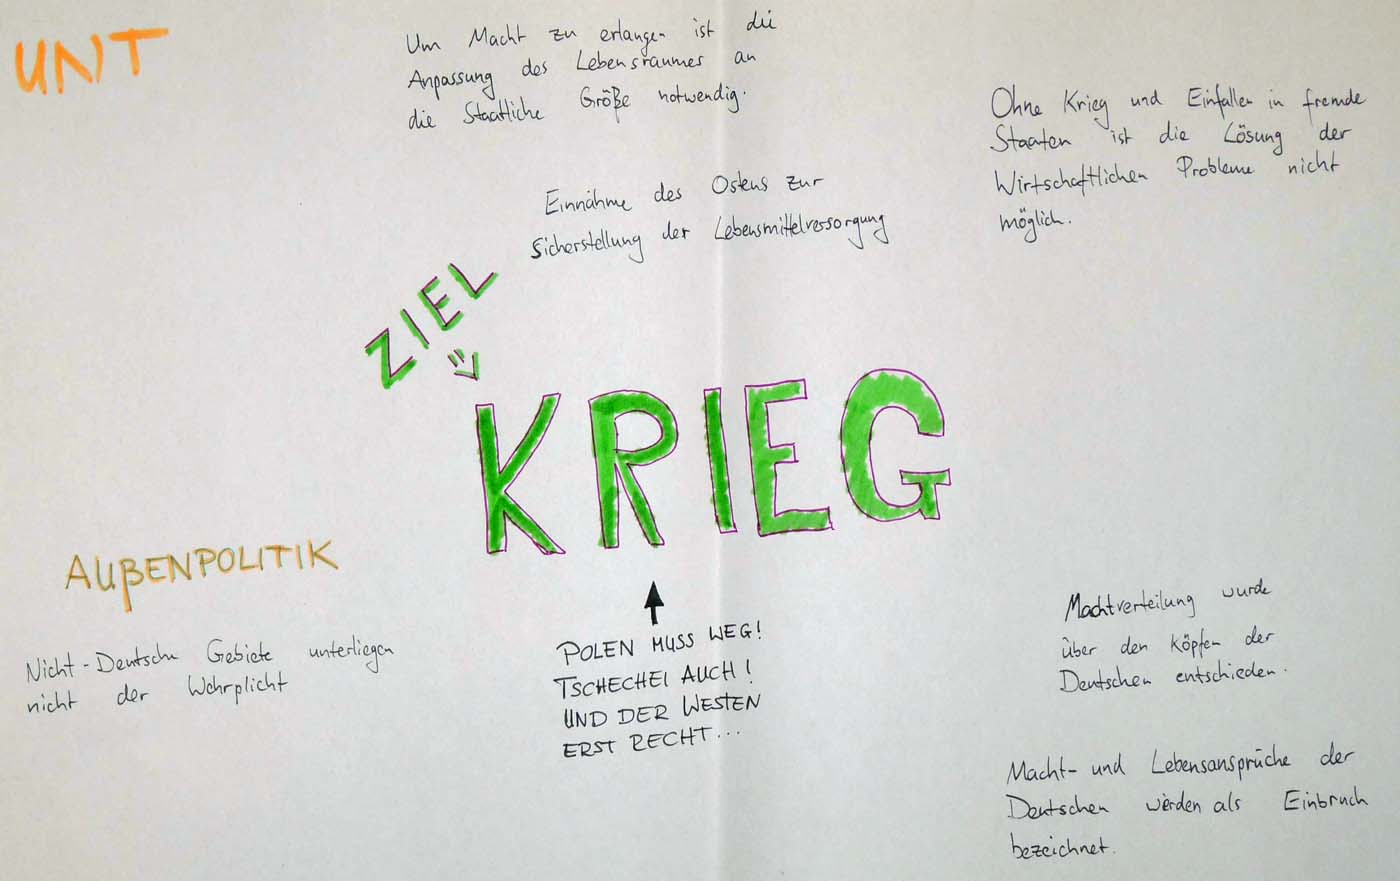 UNT
Um Macht zu erlangen ist die
Anpassung des Lebensraumes an
die Staatliche Größe notwendig.
Ohne Krieg und Einfallen in fremde
Staaten ist die Lösung der
Wirtschaftlichen Probleme nicht
möglich.
Einnähme des Ostens zur
Sicherstellung der Lebensmittelversorgung
ZIEL
KRIEG
AUßENPOLITIK
Nicht-Deutsche Gebiete unterliegen
nicht der Wehrplicht
POLEN MUSS WEG!
TSCHECHEI AUCH!
UND DER WESTEN
ERST RECHT...
Machtverteilung wurde
über den Köpfen der
Deutschen entschieden.
Macht- und Lebensansprüche der
Deutschen werden als Einbruch
bezeichnet.